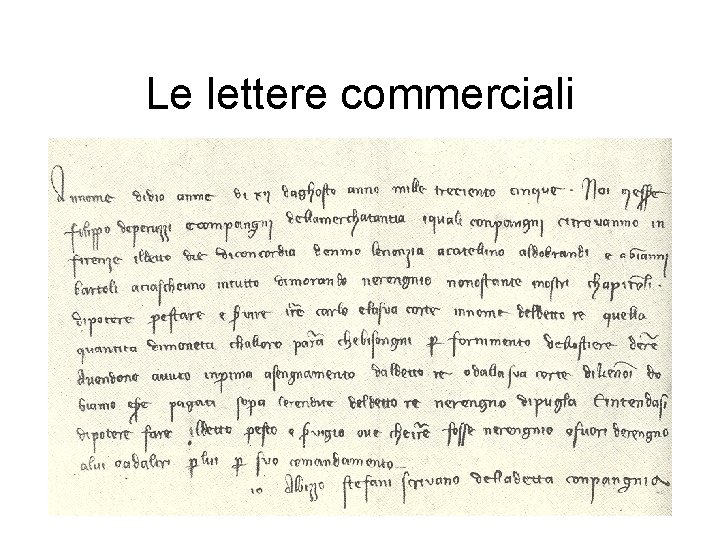 Le lettere commerciali
Innome didio amme di xij daghosto anno mille treciento cinque. Noi messe
filippo deperuzzi e compangni dellamerchatantia iquali conpangni citrovanmo in
firenze ildetto die diconcordia demmo lenonzia acatellino aldobrandi e a
bartoli aciascheuno intutto dimorando nerengnio nonostante nostri chapitoli.
dipotere prestare e servire ire carlo elasua corte innome deldetto re quella
quantita dimoneta challoro parra chebisongni per fornimento dellostiere dere
Avendono avuto inprima asengnamento daldetto re odallasua corte di do
biamo pagati sopa lerendite deldetto re nerengno dipugla Eintendasi
dipotere fare ildetto presto e servigio ove cheire fosse nerengnio ofuori derengno
alui oadaltri per lui per suo comandamento
io Albizzo stefani scrivano delladetta conpangnia